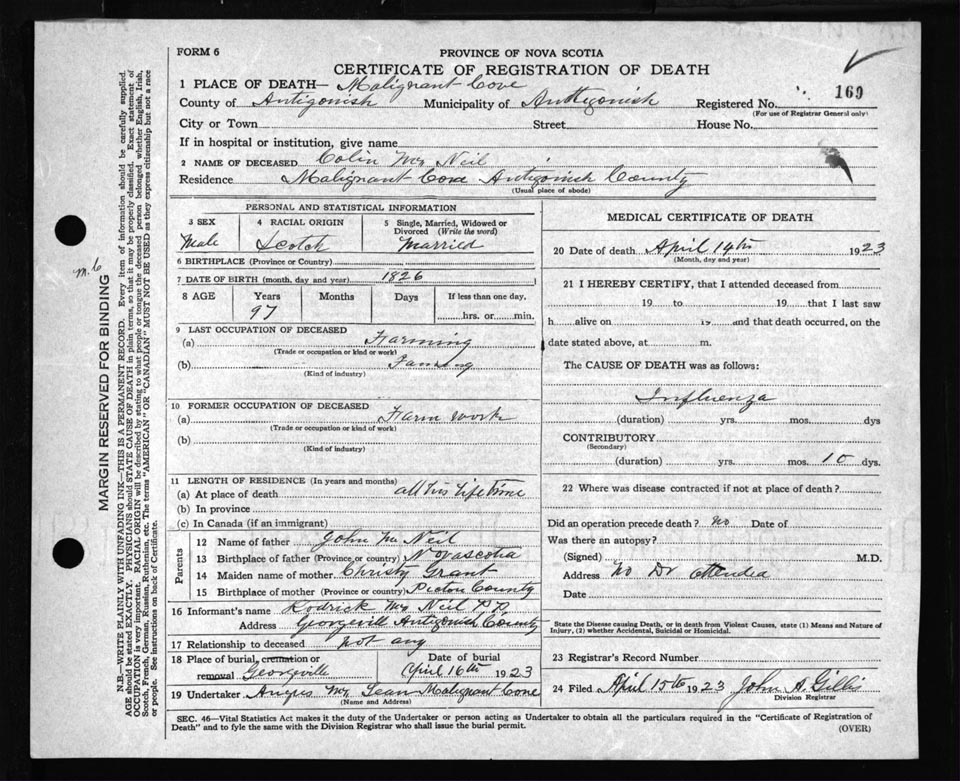 FORM 6
PROVINCE OF NOVA SCOTIA
CERTIFICATE OF REGISTRATION OF DEATH
1 PLACE OF DEATH— Malignant Cove
County of Antigonish Municipality of Antigonish Registered No. 169
(For use of Registrar General only)
City or Town Street House No.
If in hospital or institution, give name
2 NAME OF DECEASED Colin Mc Neil
Residence Malignant Cove Antigonish County
(Usual place of abode)
PERSONAL AND STATISTICAL INFORMATION
3 SEX 4 RACIAL ORIGIN 5 Single, Married, Widowed or Divorced (Write the word)
Male Scotch Married
6 BIRTHPLACE (Province or Country)
7 DATE OF BIRTH (month, day and year) 1826
8 AGE Years Months Days If less than one day,
97 hrs. or min.
9 LAST OCCUPATION OF DECEASED
(a) Farming
(Trade or occupation or kind or work)
(b) Farming
(Kind of industry)
10 FORMER OCCUPATION OF DECEASED
(a) Farm work
(Trade or occupation or kind of work)
(b)
(Kind of industry)
11 LENGTH OF RESIDENCE (In years and months)
(a) At place of death all his Life time
(b) In province
(c) In Canada (if an immigrant)
Parents
12 Name of father John Mc Neil
13 Birthplace of father (Province or country) Novascotia
14 Maiden name of mother Christy Grant
15 Birthplace of mother (Province or country) Pictou County
16 Informant's name Rodrick Mc Neil P.P.
Address Georgeville Antigonish County
17 Relationship to deceased not any
18 Place of burial, cremation or removal Georgeville Date of burial April 16th 1923
19 Undertaker Angus Mc Lean Malignant Cove
(Name and Address)
MEDICAL CERTIFICATE OF DEATH
20 Date of death April 14th 1923
(Month, day and year)
21 I HEREBY CERTIFY, that I attended deceased from
19 to 19 that I last saw
h alive on 19 and that death occurred, on the
date stated above, at m.
The CAUSE OF DEATH was as follows:
Influenza
(duration) yrs. mos. dys
CONTRIBUTORY
(Secondary)
(duration) yrs. mos. 10 dys.
22 Where was disease contracted if not at place of death?
Did an operation precede death? no Date of
Was there an autopsy?
(Signed) M.D.
Address no Dr attended
Date
State the Disease causing Death, or in death from Violent Causes, state (1) Means and Nature of
Injury, (2) whether Accidental, Suicidal or Homicidal.
23 Registrar's Record Number
24 Filed April 15th 1923 John A. Gillis
Division Registrar
SEC. 46—Vital Statistics Act makes it the duty of the Undertaker or person acting as Undertaker to obtain all the particulars required in the "Certificate of Registration of
Death" and to fyle the same with the Division Registrar who shall issue the burial permit.
(OVER)
MARGIN RESERVED FOR BINDING
N.B.—WRITE PLAINLY WITH UNFADING INK—THIS IS A PERMANENT RECORD. Every item of information should be carefully supplied.
AGE should be stated EXACTLY. PHYSICIANS should STATE CAUSE OF DEATH in plain terms, so that it may be properly classified. Exact statement of
OCCUPATION is very important. RACIAL ORIGIN will be described by stating to what people or tongue the deceased person belonged whether English, Irish,
Scotch, French, German, Russian, Ruthenian, etc. The terms "AMERICAN" OR "CANADIAN" MUST NOT BE USED as they express citizenship but not a race
or people. See instructions on back of Certificate.